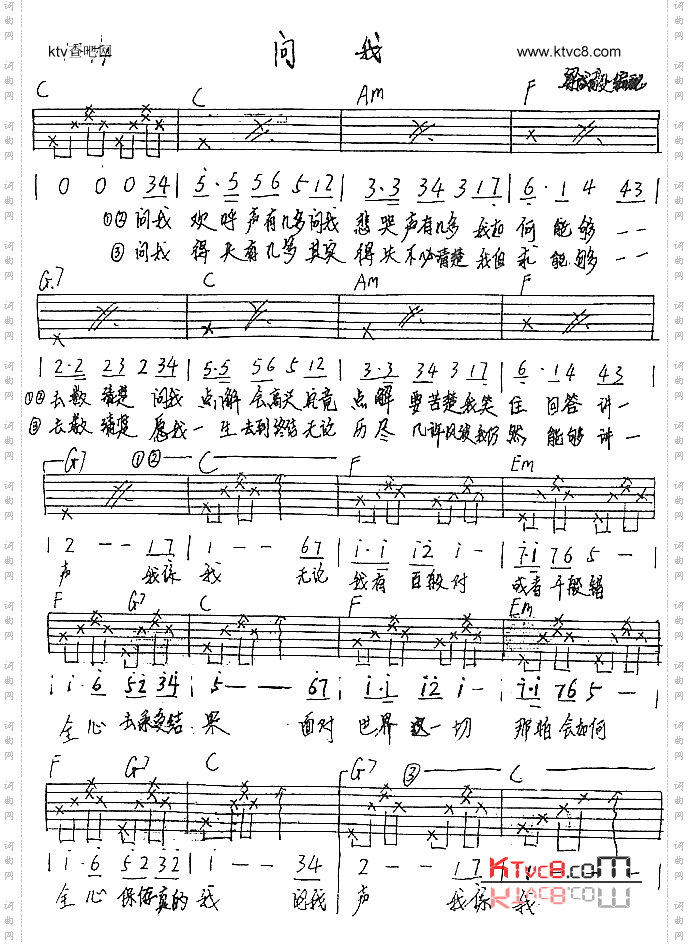 ktv香吧网 问 我 www.ktvc8.com
C C Am F
| 0 0 0 34 | 5·5 56 5 12 | 3·3 34 3 17 | 6·1 4 43
①②问我 欢呼声有几多问我 悲哭声有几多 我如何能够 — —
③问我 得失有几多其实 得失不必清楚 我但求能够 — —
G7 C Am F
| 2·2 23 2 34 | 5·5 56 5 12 | 3·3 34 3 17 | 6·1 4 43
①②去数清楚 问我 点解会高兴 究竟 点解要苦楚 我笑住回答 讲一
③去数清楚 愿我一生去到终结 无论 历尽几许风波我仍然 能够讲一
G7 ①② C F Em
| 2 — — 17 | 1 — — 67 | i·i i2 i — | 7·i 76 5 —
声 我係我 无论 我有 百般对 或者千般错
F G7 C F Em
| i i·6 52 34 | 5 — — 67 | i·i i2 i — | 7·i 76 5 —
全心去承受结果 面对 世界这一切 那怕会如何
F G7 C G7 ③ C
| i i·6 52 32 | 1 — — 34 | 2 — — 17 |
全心保存真的我 问我 声 我係我
KTvc8.com
词曲网